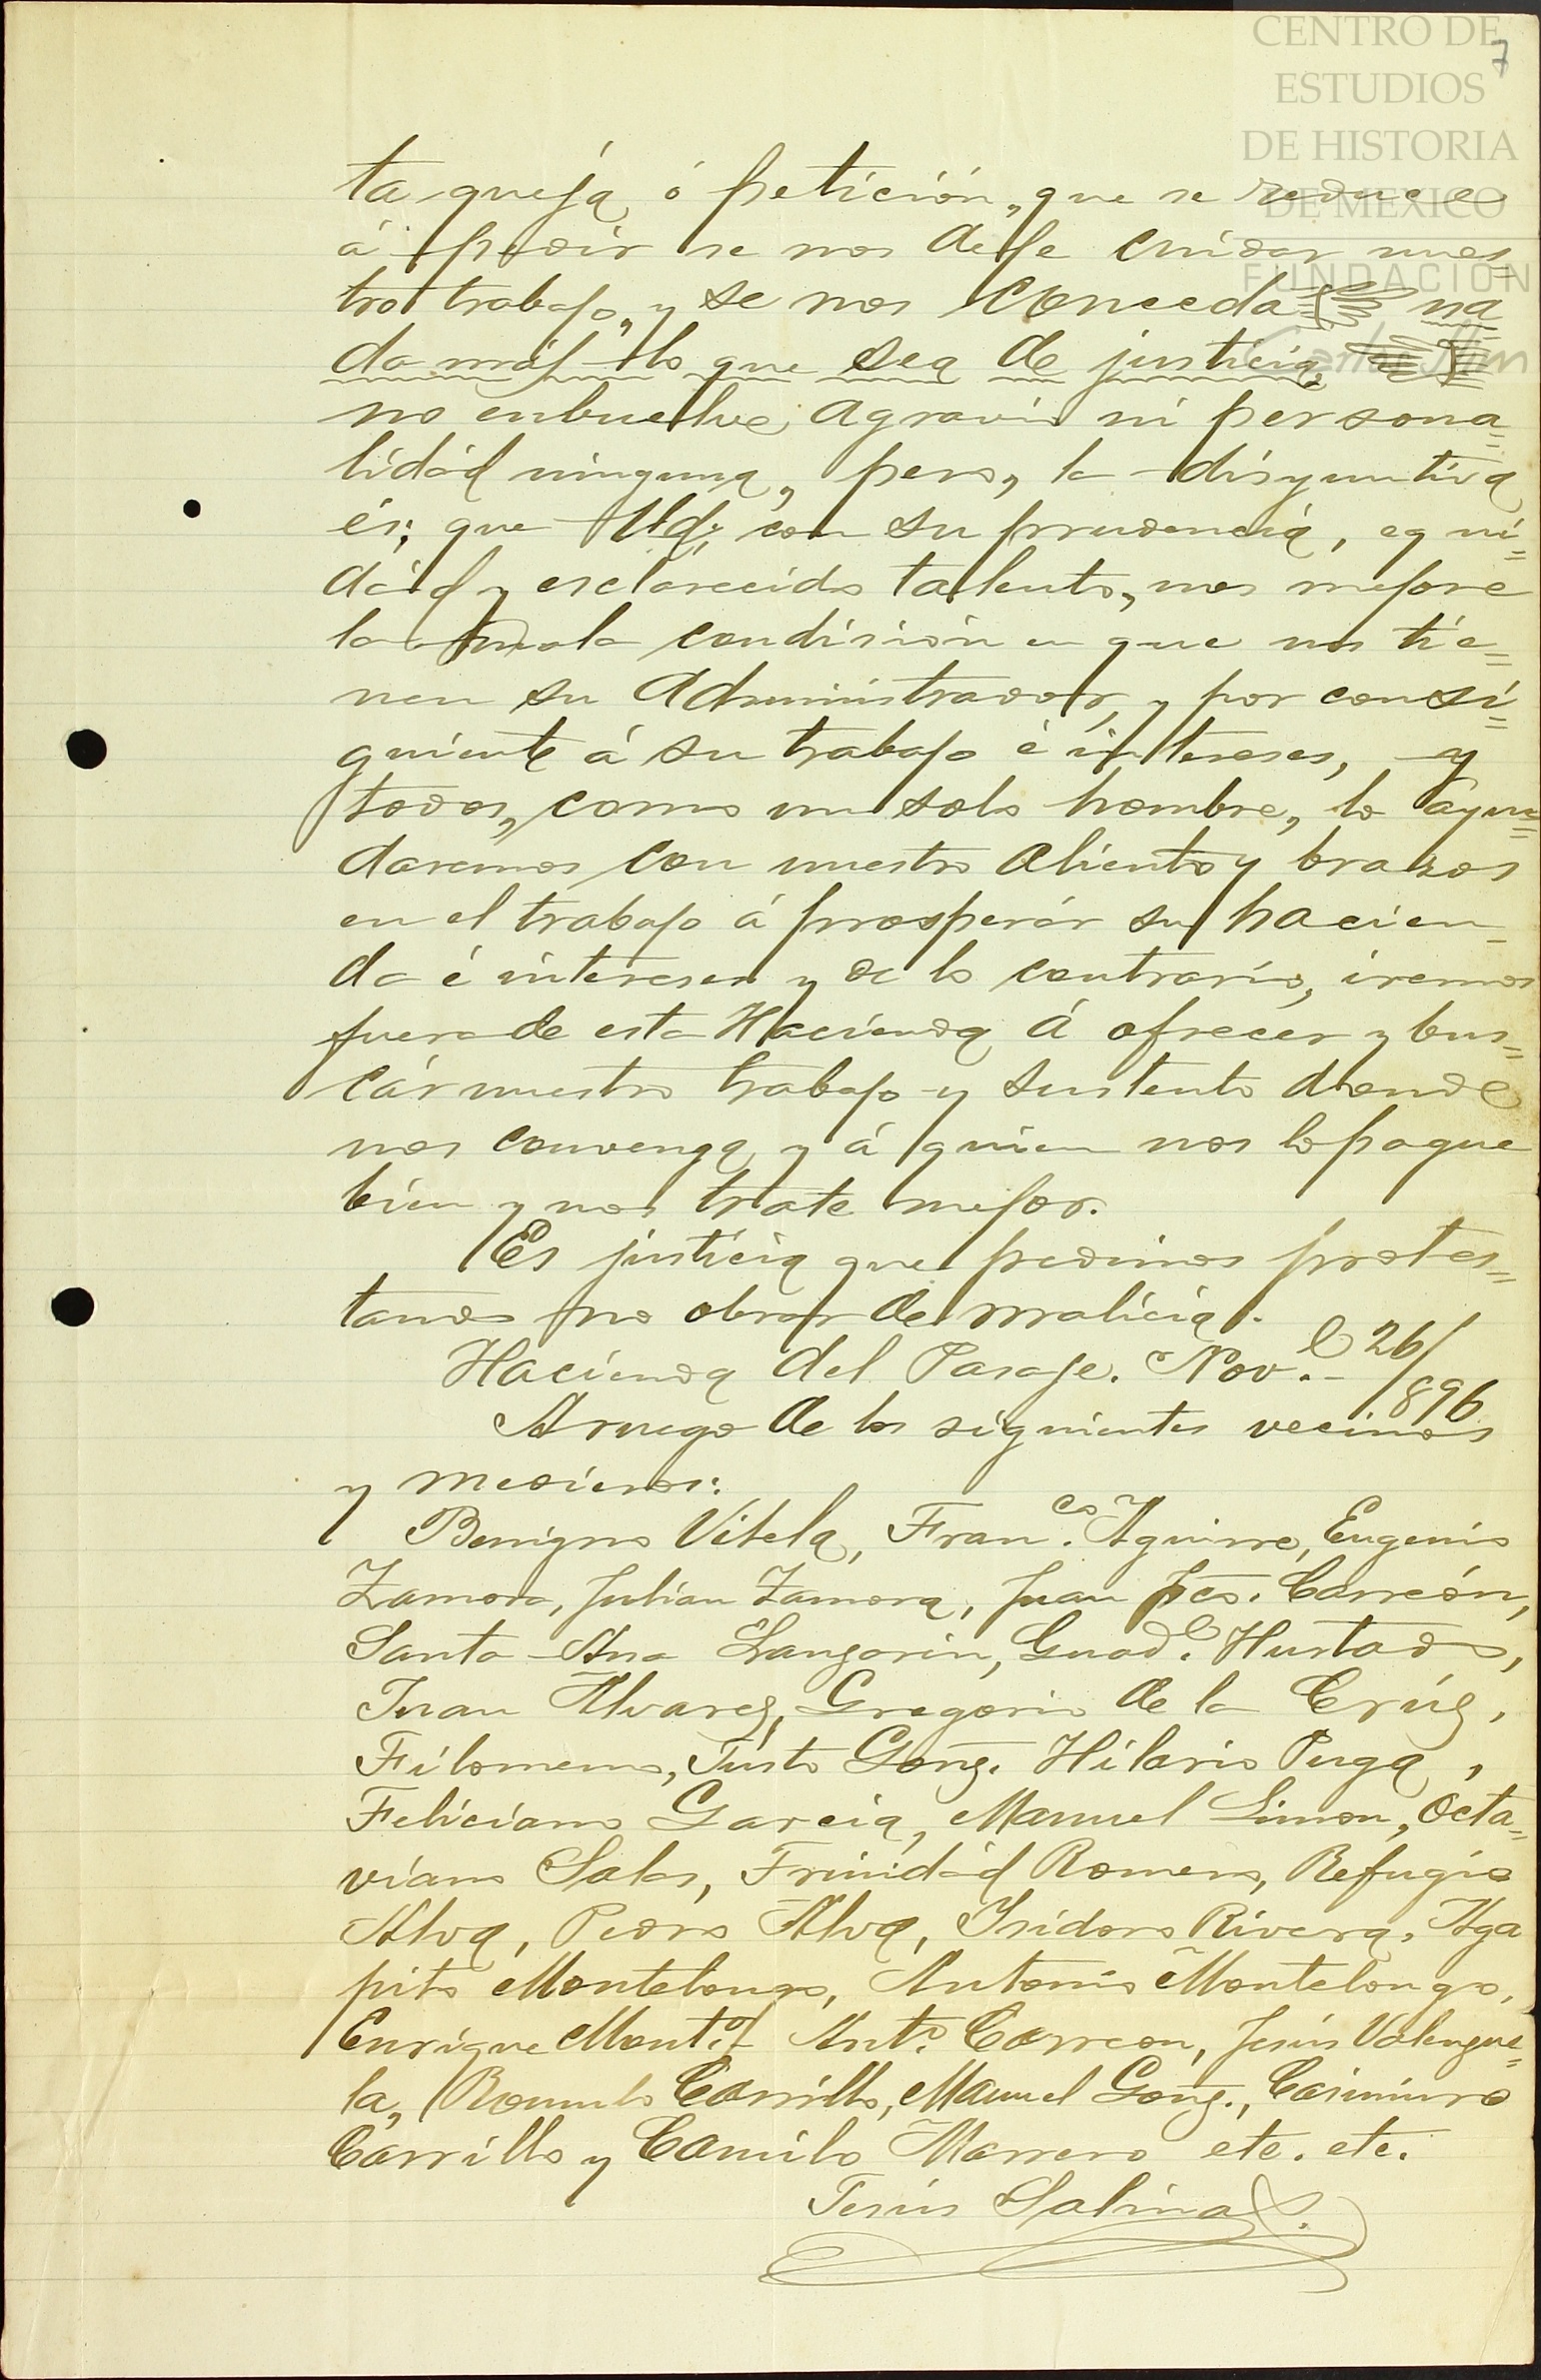 CENTRO DE
ESTUDIOS
DE HISTORIA
DE MEXICO
FUNDACION
Carlos Slim
7
ta queja ó petición, que se reduce
á pedir se nos deje cuidar nues=
tro trabajo, y se nos conceda na
da más lo que sea de justicia,
no enbuelve agravio ni persona=
lidád ninguna, pero, la disyuntiva
és; que Ud; con su prudencia, equi=
dád y esclarecido talento, nos mejore
la mala condisión en que nos tie=
nen su Administrador, y por consi=
guiente á su trabajo é intereses, y
todos, como un solo hombre, lo ayu=
daremos con nuestro aliento y brazos
en el trabajo á prosperár su hacien_
da é intereses y de lo contrario, iremos
fuera de esta Hacienda á ofrecer y bus=
cár nuestro trabajo y sustento donde
nos convenga y á quien nos lo pague
bien y nos trate mejor.
Es justicia que pedimos protes=
tando no obrar de malicia.
Hacienda del Pasaje. Nov.e 26/896
Aruego de los siguientes vecinos
y medieros:
Benigno Vitela, Fran.co Aguirre, Eugenio
Zamora, Julian Zamora, Juan Fco. Carreón,
Santa Ana Langorin, Guad.e Hurtado,
Juan Alvarez, Gregorio de la Crúz,
Filomeno, Justo Gonz. Hilario Puga,
Feliciano Garcia, Manuel Simon, Octa=
viano Salas, Trinidád Romero, Refugio
Alva, Pedro Alva, Isidoro Rivera, Aga
pito Montelongo, Antonio Montelongo,
Enrique Mont.o Ant.o Carreon, Jesús Valenzue=
la, Romulo Carrillo, Manuel Gonz., Casimiro
Carrillo y Camilo Marrero etc. etc.
Jesús Salinas.